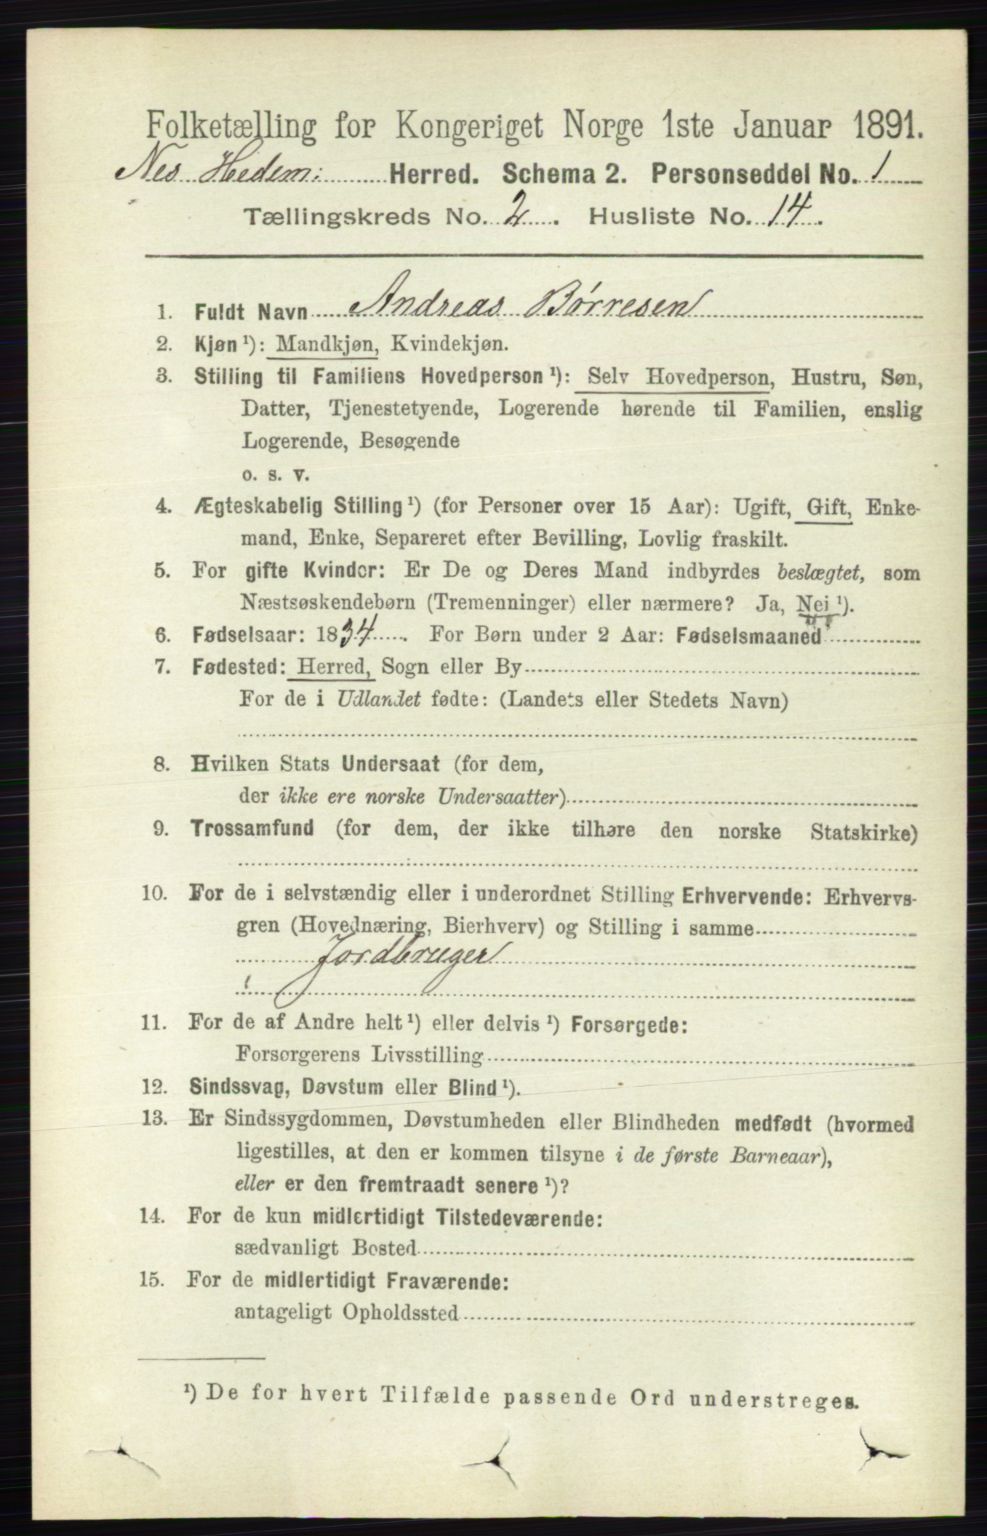 Folketælling for Kongeriget Norge 1ste Januar 1891.
Nes Hedem: Herred. Schema 2. Personseddel No. 1
Tællingskreds No. 2. Husliste No. 14.
1. Fuldt Navn Andreas Børresen
2. Kjøn ¹): Mandkjøn, Kvindekjøn.
3. Stilling til Familiens Hovedperson ¹): Selv Hovedperson, Hustru, Søn,
Datter, Tjenestetyende, Logerende hørende til Familien, enslig
Logerende, Besøgende
o. s. v.
4. Ægteskabelig Stilling ¹) (for Personer over 15 Aar): Ugift, Gift, Enke-
mand, Enke, Separeret efter Bevilling, Lovlig fraskilt.
5. For gifte Kvinder: Er De og Deres Mand indbyrdes beslægtet, som
Næstsøskendebørn (Tremenninger) eller nærmere? Ja, Nei ¹).
6. Fødselsaar: 1834. For Børn under 2 Aar: Fødselsmaaned
7. Fødested: Herred, Sogn eller By
For de i Udlandet fødte: (Landets eller Stedets Navn)
8. Hvilken Stats Undersaat (for dem,
der ikke ere norske Undersaatter)
9. Trossamfund (for dem, der ikke tilhøre den norske Statskirke)
10. For de i selvstændig eller i underordnet Stilling Erhvervende: Erhvervs-
gren (Hovednæring, Bierhverv) og Stilling i samme
Jordbruger
11. For de af Andre helt ¹) eller delvis ¹) Forsørgede:
Forsørgerens Livsstilling
12. Sindssvag, Døvstum eller Blind ¹).
13. Er Sindssygdommen, Døvstumheden eller Blindheden medfødt (hvormed
ligestilles, at den er kommen tilsyne i de første Barneaar),
eller er den fremtraadt senere ¹)?
14. For de kun midlertidigt Tilstedeværende:
sædvanligt Bosted
15. For de midlertidigt Fraværende:
antageligt Opholdssted
¹) De for hvert Tilfælde passende Ord understreges.